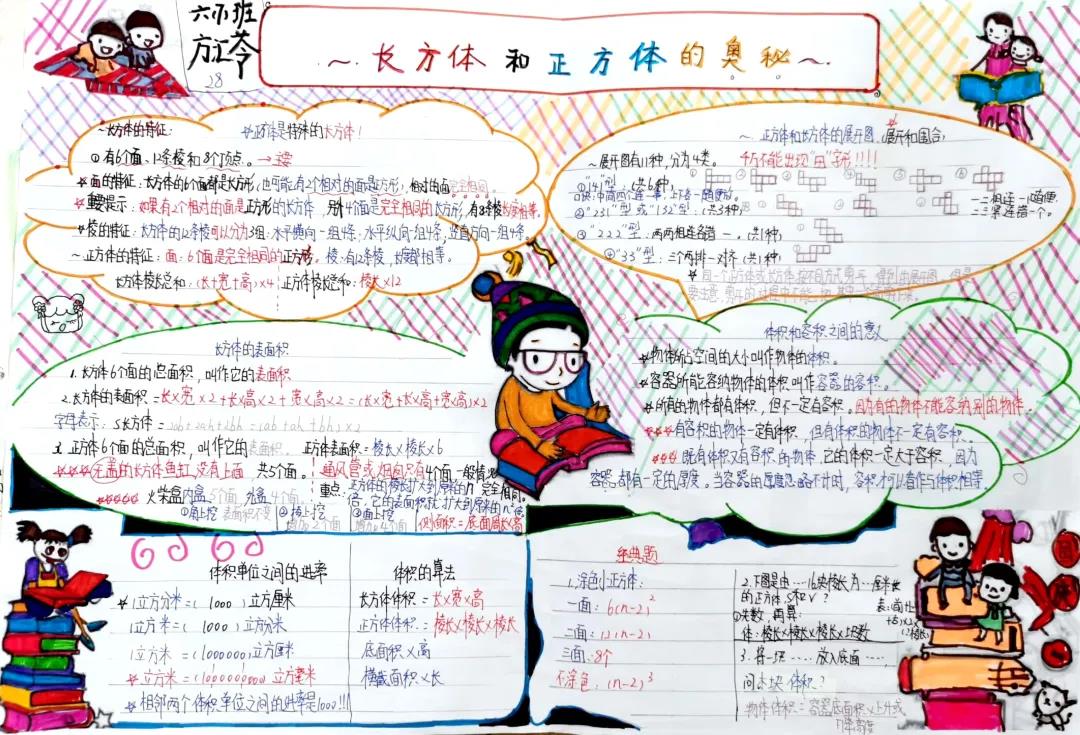 六(5)班
28
~ 长方体和正方体的奥秘 ~
~长方体的特征: ☆正方体是特殊的长方体!
① 有6个面、12条棱和8个顶点。→主要
☆面的特征:长方体的6个面都是长方形,也可能有2个相对的面是正方形,相对的面完全相同。
提示:如果有2个相对的面是正方形的长方体,另外4个面是完全相同的长方形,有8条棱长度相等。
☆棱的特征:长方体的12条棱可以分为3组:水平横向一组4条,水平纵向一组4条,竖直方向一组4条。
~正方体的特征:面:6个面是完全相同的正方形。棱:有12条棱,长度都相等。
长方体棱长总和:(长+宽+高)×4 正方体棱长总和:棱长×12
~正方体和长方体的展开图(展开和围合)
~展开图有11种,分为4类。 千万不能出现"田"字形!!!!
①"141"型 (共6种)
口诀:中间四个连一串,上下各一随便放。
②"231"型或"132"型:(共3种)
二三相连一随便
三个"三"紧连错一个。
③"222"型:两两相连各错一。(共1种)
④"33"型:三个两排一对齐(共1种)
长方体的表面积
1.长方体6个面的总面积,叫作它的表面积
2.长方体的表面积=长×宽×2+长×高×2+宽×高×2=(长×宽+长×高+宽×高)×2
字母表示:S长方体=2ab+2ah+2bh=(ab+ah+bh)×2
3.正方体6个面的总面积,叫作它的表面积. 正方体表面积:棱长×棱长×6
☆☆☆☆无盖的长方体鱼缸没有上面,共5个面。!通风管或烟囱只有4个面
☆☆☆☆☆ 火柴盒内盒5个面,外盒4个面
①角上挖 ②棱上挖 ③面上挖
表面积不变 增加2个面 增加4个面
侧面积=底面周长×高
体积和容积之间的意义
☆物体所占空间的大小叫作物体的体积。
☆容器所能容纳物体的体积叫作容器的容积。
☆所有的物体都有体积,但不一定有容积。因为有的物体不能容纳别的物体。
☆☆☆有容积的物体一定有体积,但有体积的物体不一定有容积。
☆☆☆既有体积又有容积的物体,它的体积一定大于容积,因为
容器都有一定的厚度。当容器的厚度忽略不计时,容积才可以看作与体积相等。
体积单位之间的进率
☆1立方分米=(1000)立方厘米
1立方米=(1000)立方分米
1立方米=(1000000)立方厘米
☆相邻两个体积单位之间的进率是1000!!!
体积的算法
长方体体积=长×宽×高
正方体体积=棱长×棱长×棱长
底面积×高
横截面积×长
经典题
1.涂色小正方体:
一面:6(n-2)²
二面:12(n-2)
三面:8个
不涂色:(n-2)³
2.下图是由……16块棱长为一厘米
的正方体,S和V?
体:棱长×棱长×棱长×块数
3.将一块……放入底面……,
问石块体积?
物体体积=容器底面积×上升或
下降高度